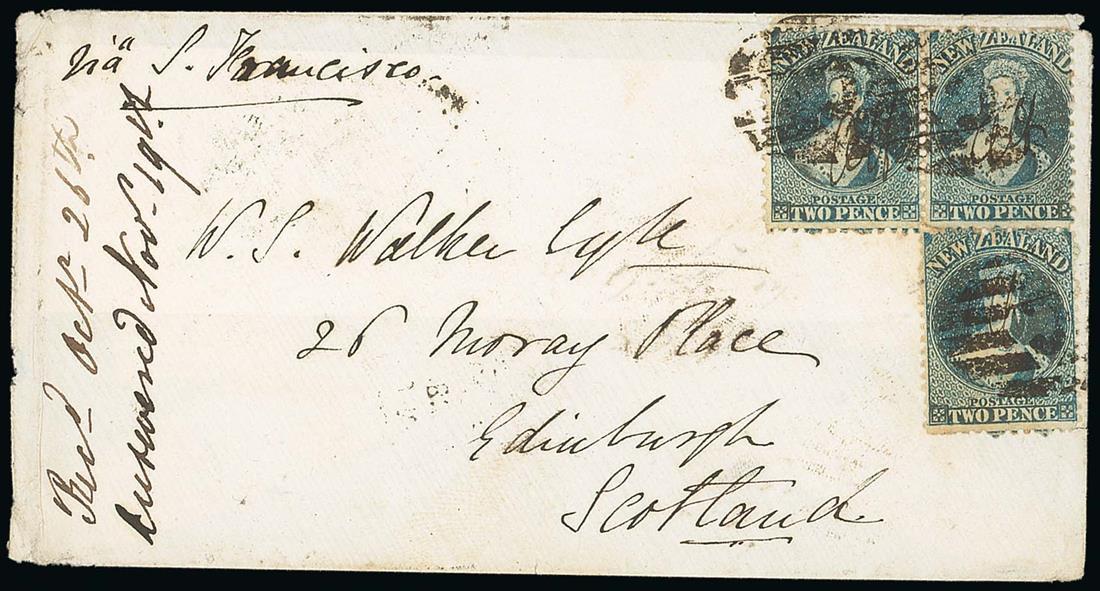 via S. Francisco
Recd Octr 26th
answered Novr 19th
W. S. Walker Esqre
26 Moray Place
Edinburgh
Scotland
NEW ZEALAND
POSTAGE
TWO PENCE
NEW ZEALAND
POSTAGE
TWO PENCE
NEW ZEALAND
POSTAGE
TWO PENCE